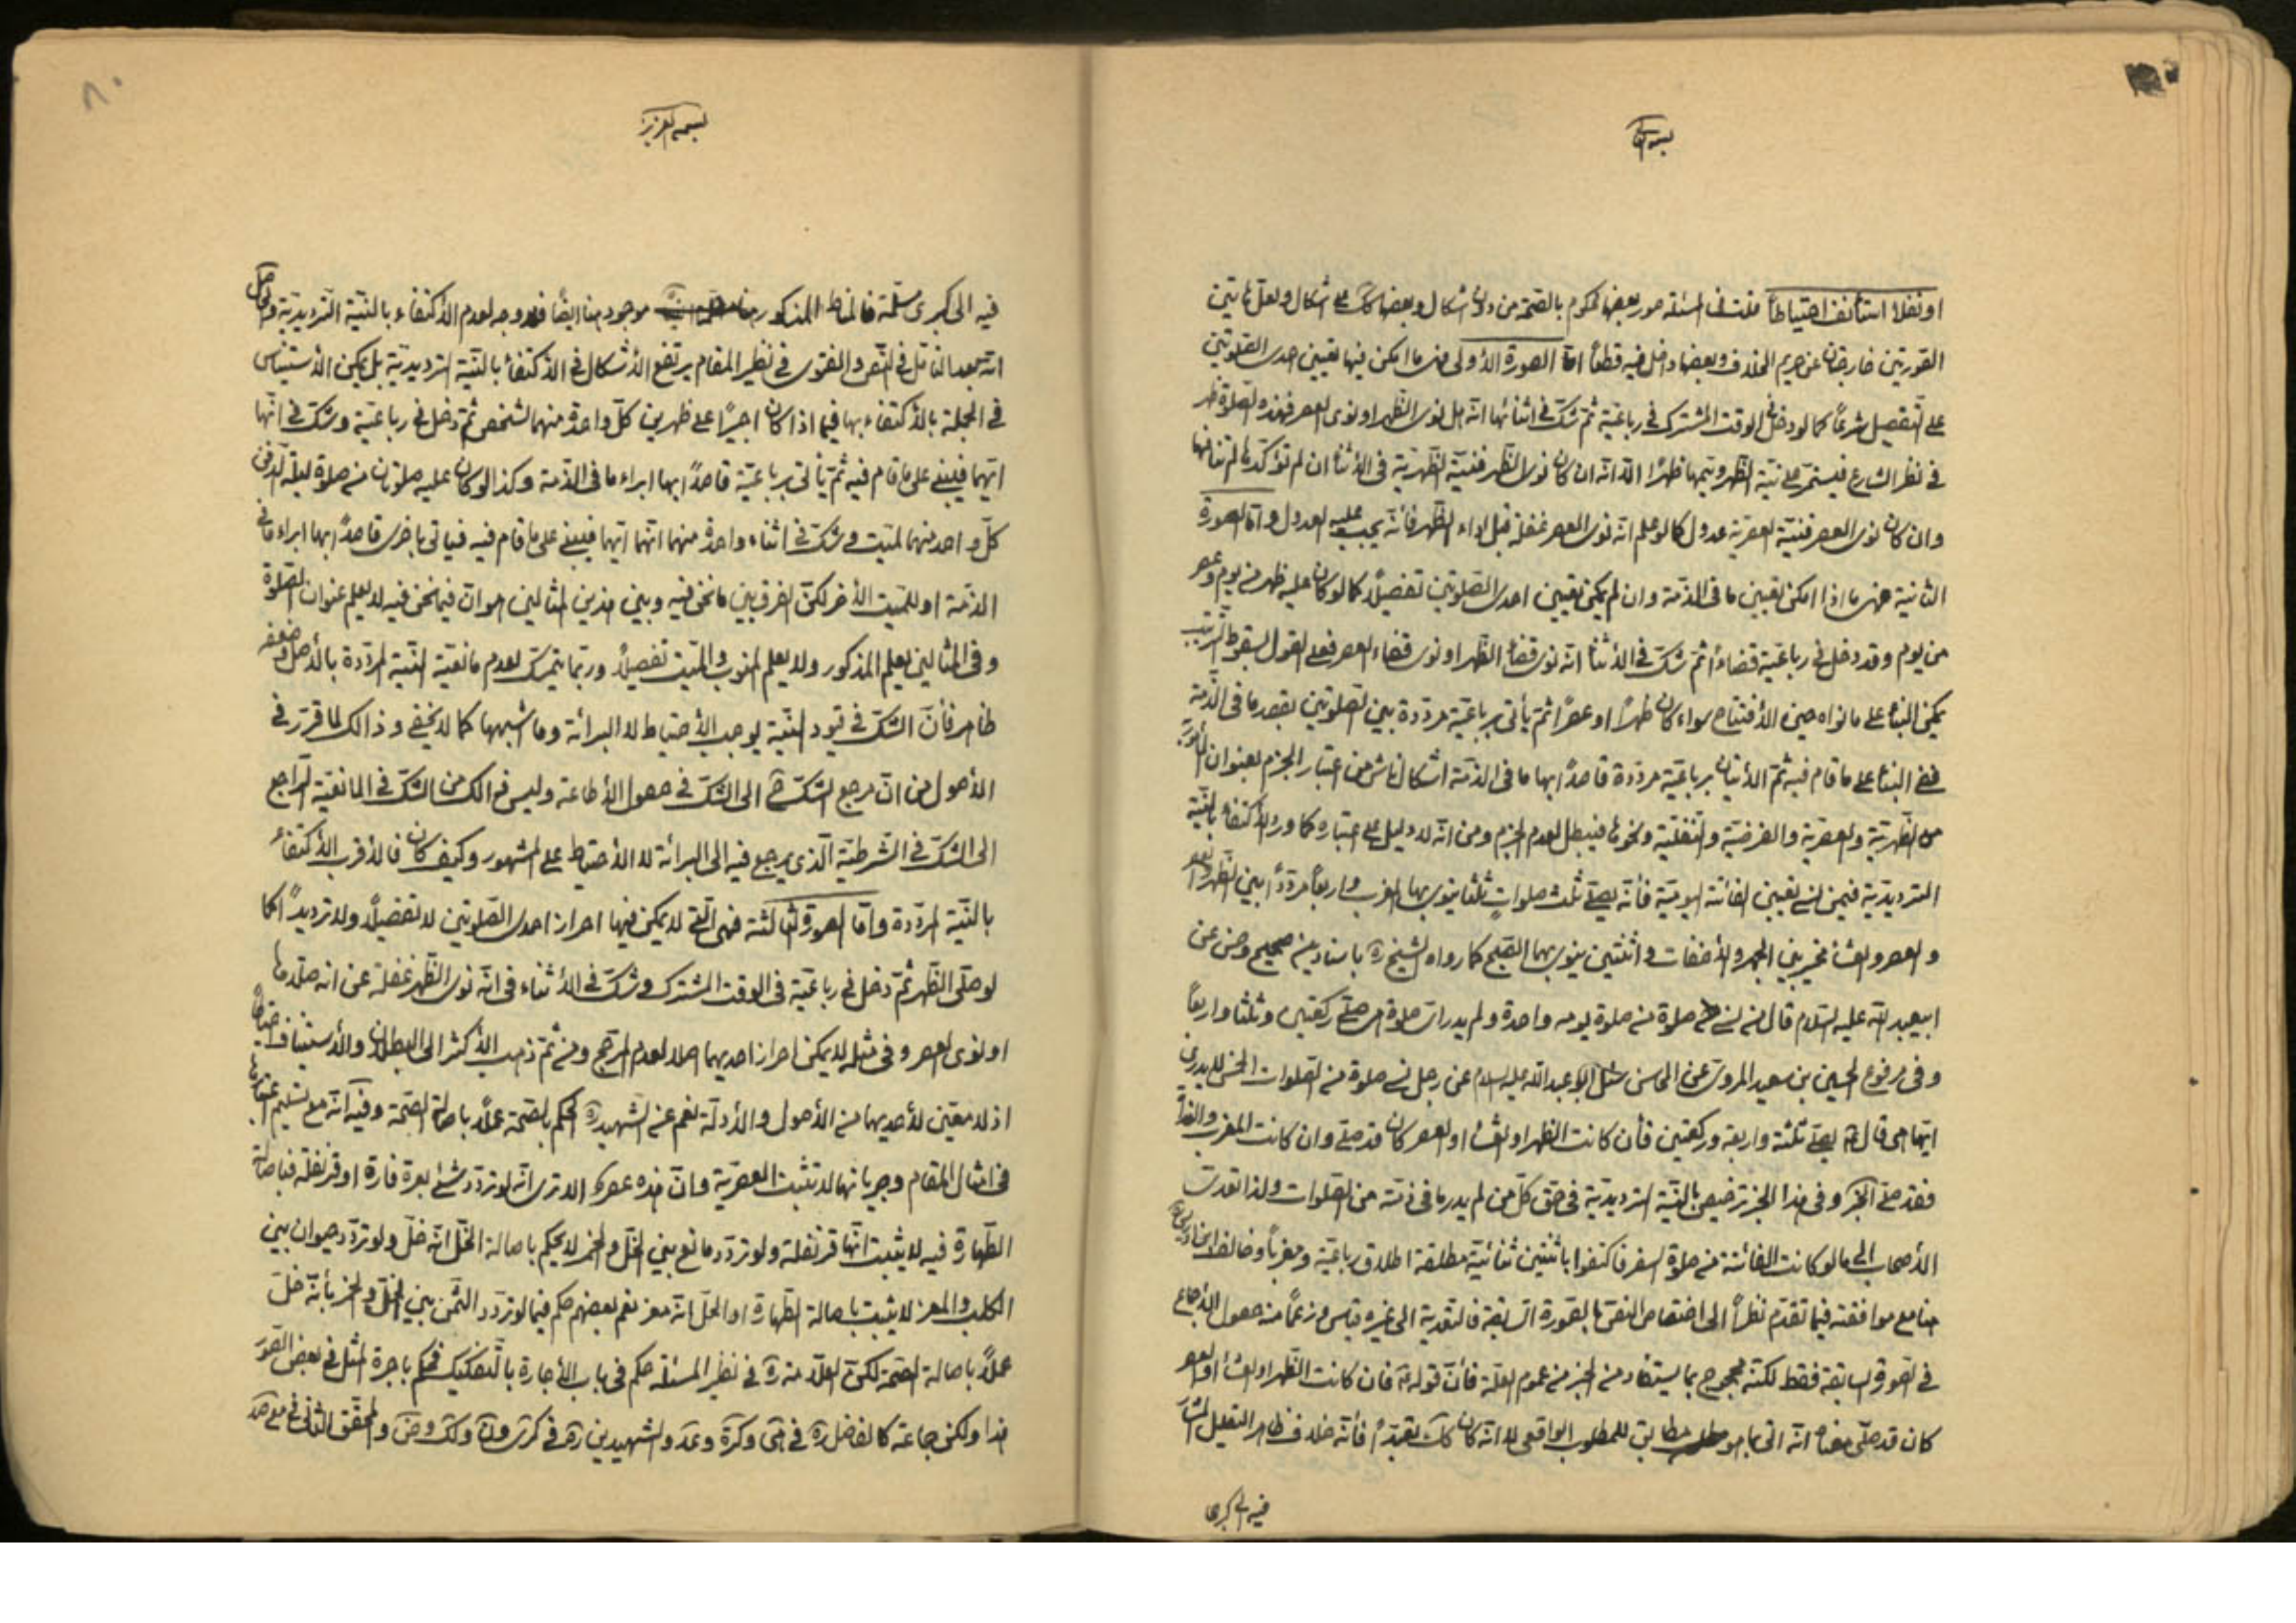 بسمه تعالى
او نفلا استأنف احتياطاً قلت فى المسئلة صور بعضها محكوم بالصحة من دون اشكال وبعضها على اشكال ولعل هاتين
الصورتين خارجتان عن حريم الخلاف وبعضها داخل فيه قطعاً امّا الصورة الأولى فهى ما امكن فيها تعيين احدى الصلوتين
على التفصيل شرعاً كما لو دخل فى الوقت المشترك فى رباعيّة ثمّ شكّ فى اثنائها انّه هل نوى الظهر او نوى العصر فهذه الصلوة ظهر
فى نظر الشارع فيستمرّ على نيّة الظهر ويتمها ظهرًا الّا انّه ان كان نوى الظهر فنيّة الظهريّة فى الأثناء ان لم تؤكدها لم تنافها
وان كان نوى العصر فنيّة العصريّة عدول كما لو علم انّه نوى العصر غفلة قبل اداء الظهر فأنّه يجب عليه العدول وامّا الصورة
الثانية فهى ما اذا امكن تعيين ما فى الذمّة وان لم يكن تعيين احدى الصلوتين تفصيلاً كما لو كان عليه ظهر من يوم وعصر
من يوم وقد دخل فى رباعيّة قضاءً ثمّ شكّ فى الأثناء انّه نوى قضاء الظهر او نوى قضاء العصر فعلى القول بسقوط الترتيب
يمكن البناء على ما نواه حين الأفتتاح سواء كان ظهراً او عصراً ثمّ يأتى برباعيّة مردّدة بين الصلوتين بقصد ما فى الذّمة
ففى البناء على ما قام فيه ثمّ الأتيان برباعيّة مردّدة قاصداً بها ما فى الذمّة اشكال ناش من اعتبار الجزم بعنوان المأمور به
من الظهريّة والعصريّة والفرضيّة والنفليّة ونحوها فيبطل لعدم الجزم ومن انّه لا دليل على اعتباره كما ورد الأكتفاء بالنيّة
الترديديّة فيمن نسى تعيين الفائتة اليوميّة فأنّه يصلّى ثلث صلوات ثلثاً ينوى بها المغرب واربعاً مردّداً بين الظهر والعصر
والعصر والعشاء مخيّر بين الجهر والأخفات واثنتين ينوى بهما الصبح كما رواه الشيخ ره باسناد عن صحيح وحسن عن
ابيعبد الله عليه السّلام قال من نسى صلوة من صلوة يومه واحدة ولم يدر اىّ صلوة هى صلّى ركعتين وثلثا واربعاً
وفى مرفوع الحسين بن سعيد المروىّ عن المحاسن سئل ابو عبدالله عليه السلام عن رجل نسى صلوة من الصلوات الخمس لا يدرى
ايّتها هى قال ع يصلّى ثلثة واربعة وركعتين فأن كانت الظهر او العشاء او العصر كان قد صلّى وان كانت المغرب والغداة
فقد صلّى الخبر وفى هذا الخبر ترخيص بالنيّة الترديديّة فى حق كلّ من لم يدر ما فى ذمّته من الصلوات ولذا تعدّت
الأصحاب الى ما لو كانت الفائتة من صلوة السفر فاكتفوا باثنتين ثنائيّة مطلقة اطلاق رباعيّة ومغرباً وخالف ابن ادريس ره
هنا مع موافقته فيما تقدّم نظراً الى اختصاص النصّ بالصورة السابقة فالتعدية الى غيره قياس وزعماً منه حصول الأجماع
فى الصورة السابقة فقط لكنّه محجوج بما يستفاد من الخبر من عموم العلّة فأنّ قوله ع فان كانت الظهر او العشاء او العصر
كان قد صلّى معناه انّه اتى بما هو مطابق للمطلوب الواقعى لا انّه كان كك تعبّداً فأنّه خلاف ظاهر التعليل المشار
فيه الى كبرى
٨٠
بسمه العزيز
فيه الى كبرى مسلّمة فالمناط المذكور موجود هنا ايضاً فلا وجه لعدم الأكتفاء بالنيّة الترديديّة والحاصل
انّه بعد التأمّل فى النصّ والفتوى فى نظير المقام يرتفع الأشكال فى الأكتفاء بالنيّة الترديديّة بل يمكن الأستيناس
فى الجملة بالأكتفاء بها فيما اذا كان اجيراً على ظهرين كلّ واحدة منهما لشخص ثمّ دخل فى رباعيّة وشكّ فى انّها
ايّهما فيبنى على ما قام فيه ثمّ يأتى برباعيّة قاصداً بها ابراء ما فى الذّمة وكذا لو كان عليه صلوتان من صلوة ليلة الدفن
كلّ واحد منهما لميّت وشكّ فى اثناء واحدة منهما انّها ايّهما فيبنى على ما قام فيه فيأتى باخرى قاصداً بها ابراء ما فى
الذمّة او للميّت الأخر لكنّ الفرق بين ما نحن فيه وبين هذين المثالين هو انّ فيما نحن فيه لا يعلم عنوان الصلوة
وفى المثالين يعلم المذكور ولا يعلم المنوب والميّت تفصيلاً وربّما يتمسّك لعدم مانعيّة النيّة المردّدة بالأصل وضعفه
ظاهر فأنّ الشكّ فى قيود النيّة يوجب الأحتياط لا البرائة وما شبهها كما لا يخفى وذالك لما قرّر فى
الأصول من انّ مرجع الشكّ ح الى الشكّ فى حصول الأطاعة وليس ذالك من الشكّ فى المانعيّة الراجع
الى الشكّ فى الشرطيّة الّذى يرجع فيه الى البرائة لا الأحتياط على المشهور وكيف كان فالأقرب الأكتفاء
بالنيّة المردّدة وامّا الصورة الثالثة فهى الّتى لا يمكن فيها احراز احدى الصلوتين لا تفصيلاً ولا ترديداً كما
لو صلّى الظهر ثمّ دخل فى رباعيّة فى الوقت المشترك وشكّ فى الأثناء فى انّه نوى الظهر غفلة عن انه صلّاها
او نوى العصر وفى مثله لا يمكن احراز احديهما اصلا لعدم المرجّح ومن ثمّ ذهب الأكثر الى البطلان والأستيناف احتياطاً
اذ لا معيّن لأحديهما من الأصول والأدلّة نعم عن الشهيد ره الحكم بالصحّة عملاً باصالة الصحّة وفيه انّه مع تسليم اعتبارها
فى امثال المقام وجريانها لا تثبت العصريّة وانّ هذه عصر الا ترى انّه لو تردّد شئ بعرة فارة او قرنفلة فباصالة
الطهارة فيه لا يثبت انّها قرنفلة ولو تردّد مائع بين الخلّ والخمر لا يحكم باصالة الخلّ انّه خلّ ولو تردّد حيوان بين
الكلب والمعز لا يثبت باصالة الطهارة او الحلّ انّه معز نعم بعضهم حكم فيما لو تردّد الثمن بين الخلّ والخمر بأنّه خلّ
عملاً باصالة الصحّة لكنّ العلّامة ره فى نظير المسئلة حكم فى باب الأجارة بالتفكيك فحكم باجرة المثل فى بعض الصور
هذا ولكن جماعة كالفاضل ره فى هى وكرة وعد والشهيدين ره فى كرى ون ولك وض والمحقق الثانى فى مع صد